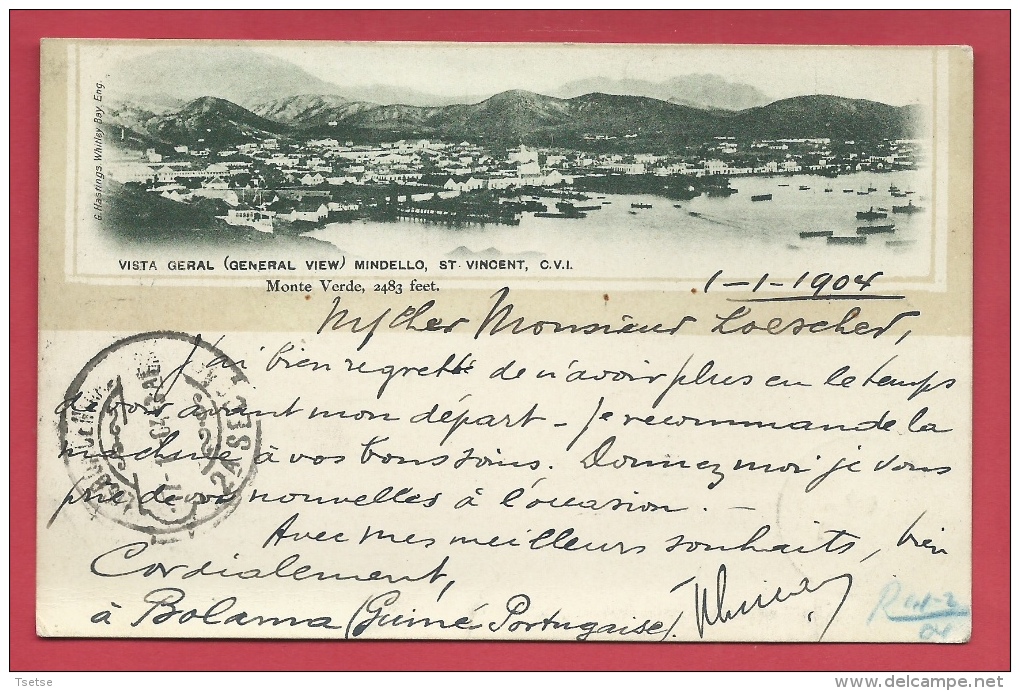 G. Hastings, Whitley Bay, Eng.
VISTA GERAL (GENERAL VIEW) MINDELLO, ST. VINCENT, C.V.I.
Monte Verde, 2483 feet.
1-1-1904
My cher Monsieur Loescher,
J'ai bien regretté de n'avoir plus eu le temps
de vous avant mon départ - Je recommande la
machine à vos bons soins. Donnez moi je vous
prie de vos nouvelles à l'occasion. -
Avec mes meilleurs souhaits, bien
Cordialement,
à Bolama (Guiné Portugaise).
2A SEC
Tsetse
www.delcampe.net